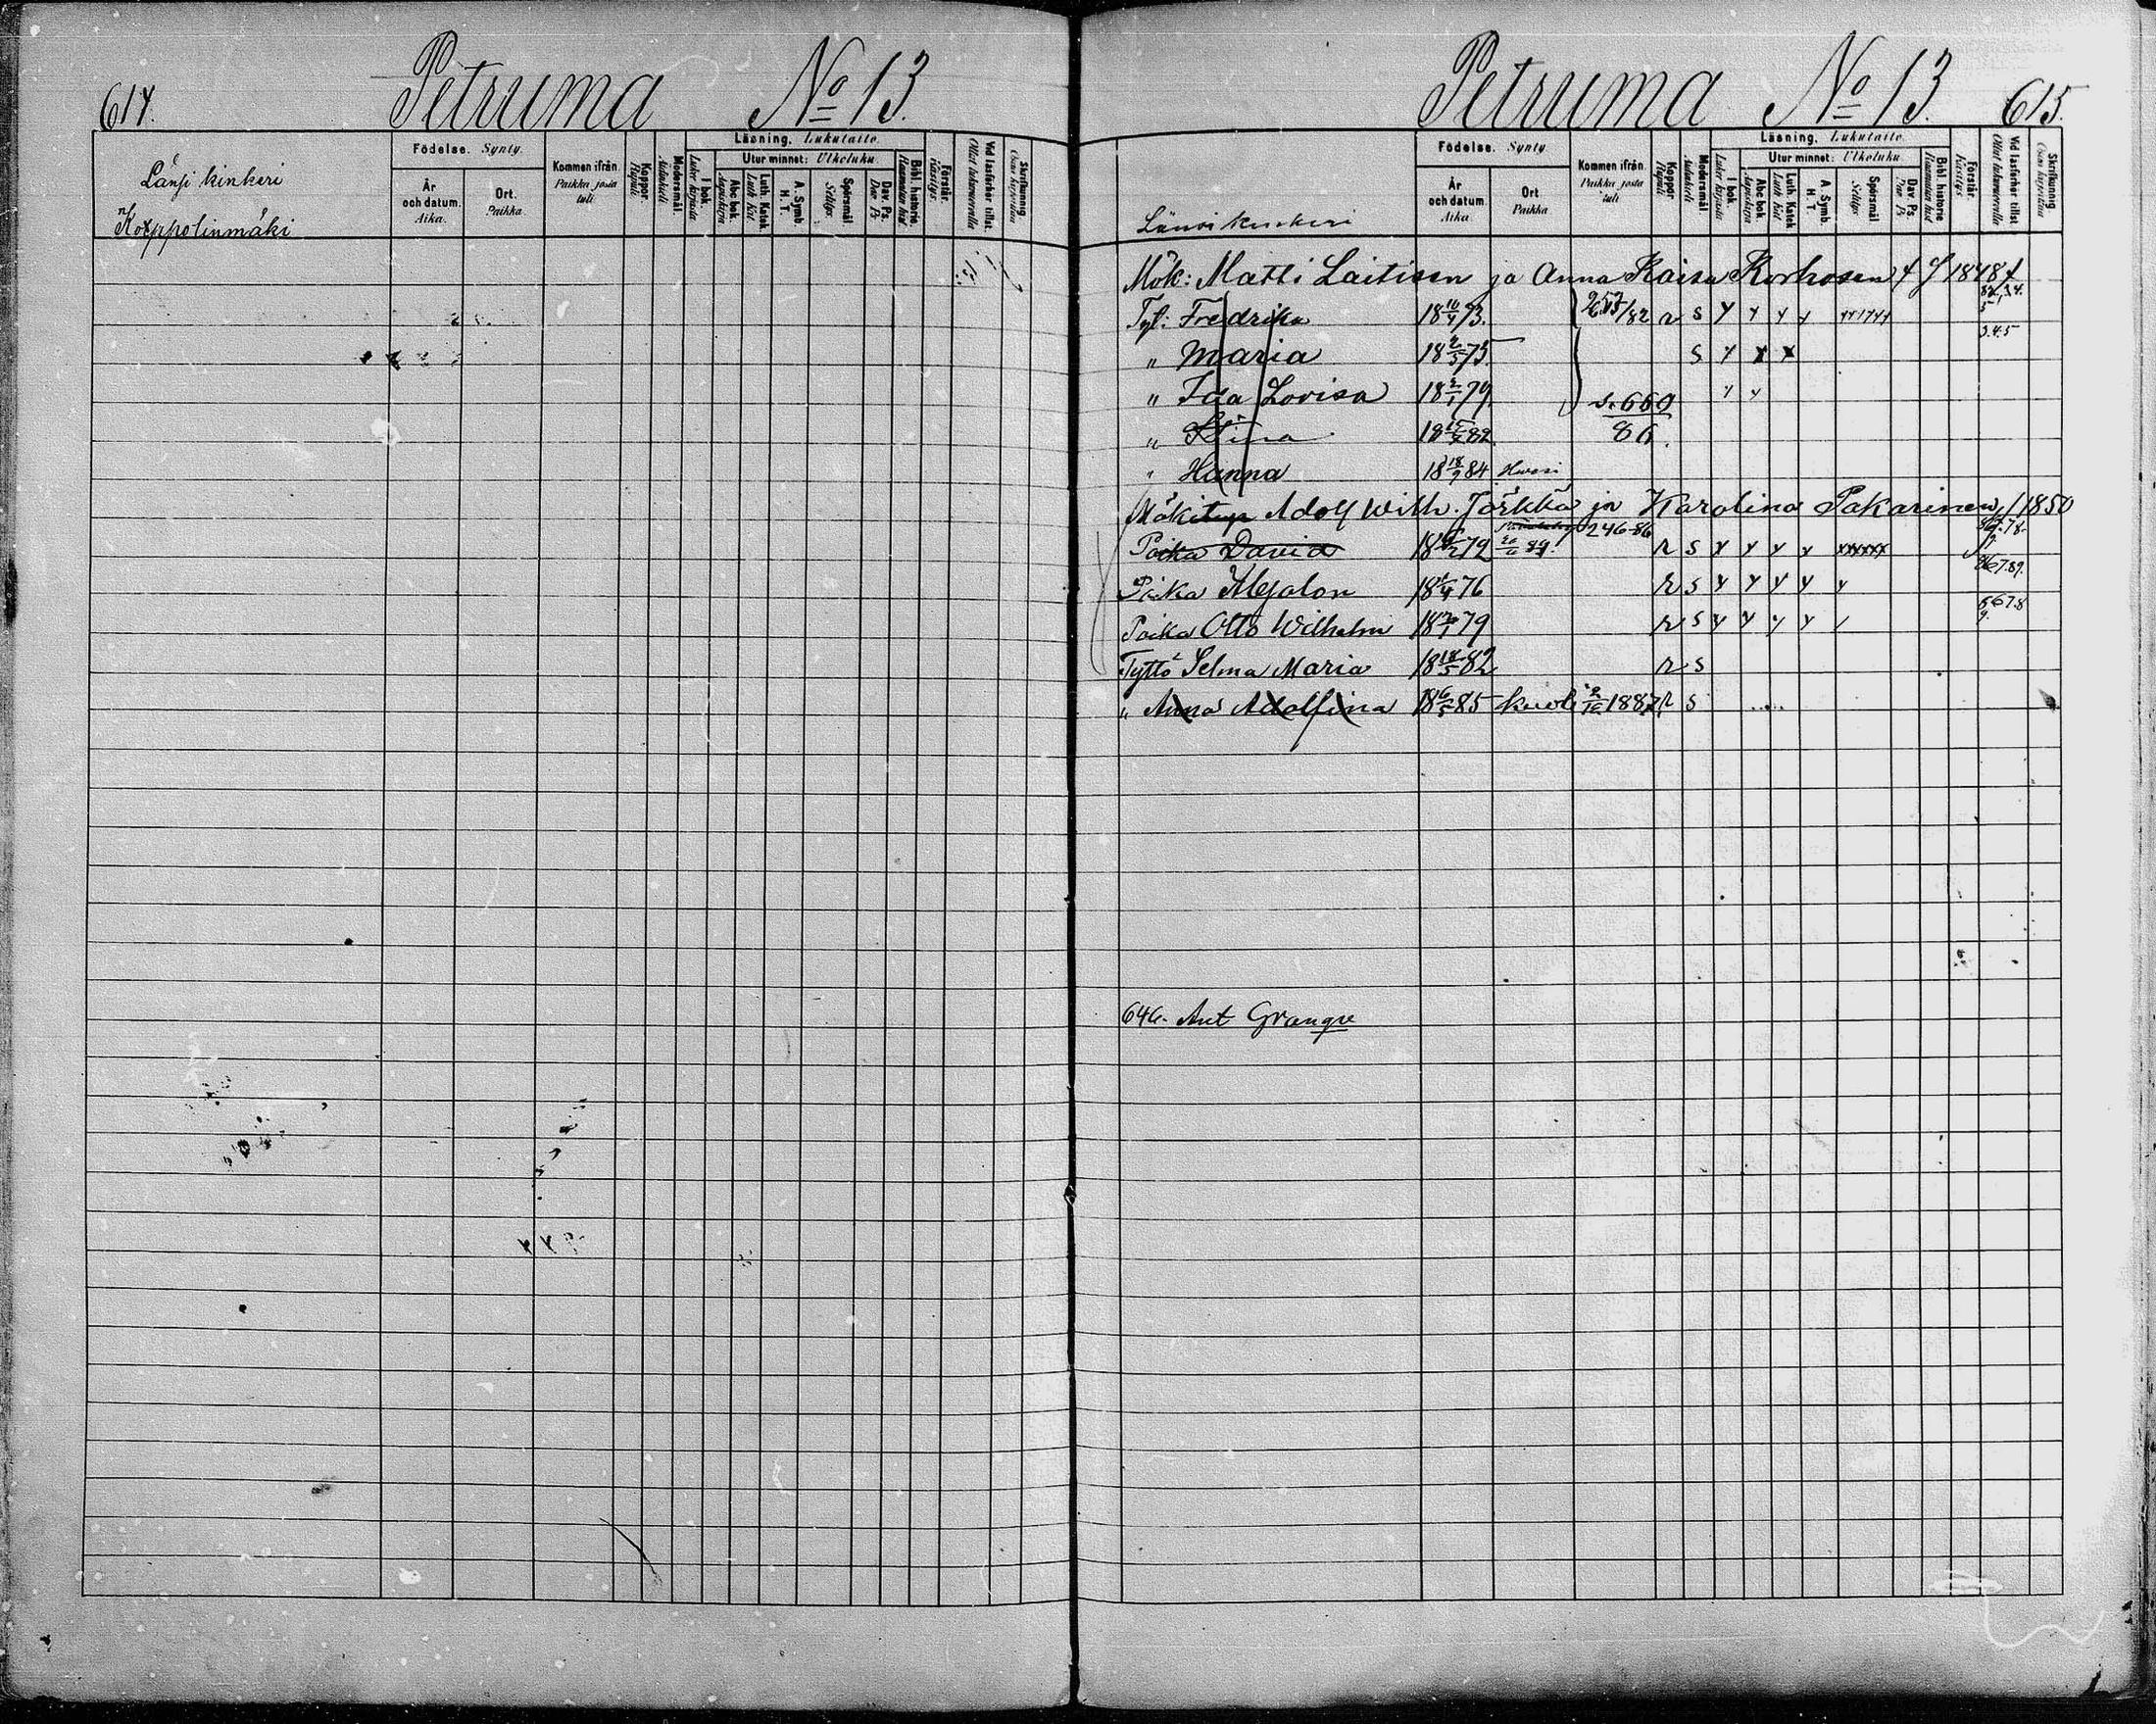 614. Petruma No 13.
Länsi kinkeri
Födelse. Synty.
År och datum. Aika.
Ort. Paikka
Kommen ifrån Paikka josta tuli.
Koppor. Rupuli
Modersmål. Äidinkieli
Läsning. Lukutaito.
I bok. Lukee kirjasta
Utur minnet: Ulkoluku.
Abc bok. Aapiskirja
Luth. Katek. Luth. Kat.
A. Symb. H. T.
Spörsmål Selitys
Dav. Ps. Dav. Ps.
Bibl. historie.
Förstår. Käsitys.
Vid läsförhör tillst. Ollut lukuvuorolla
Skrifkunnig. Osaa kirjoittaa
Petruma No 13. 615.
Länsi kinkeri
Födelse. Synty
År och datum. Aika.
Ort Paikka
Kommen ifrån. Paikka josta tuli
Koppor Rupuli
Modersmål Äidinkieli
Läsning. Lukutaito.
I bok. Lukee kirjasta
Utur minnet: Ulkoluku.
Abc bok. Aapiskirja
Luth. Katek Luth. Kat
A. Symb. H. T.
Spörsmål Selitys
Dav. Ps Dav. Ps
Bibl. historie
Förstår. Käsitys.
Vid läsförhör tillst Ollut lukuvuorolla
Skrifkunnig. Osaa kirjoittaa
Mök: Matti Laitisen ja Anna Kaisa Korhosen
Tyt: Fredrika 18 /4 73. /82 r s y y y y
" Maria 18 /5 75 s y x x 3.4.5
" Ida Lovisa 18 /1 79 s. 660 y y
" Stina 18 82 86.
" Hanna 18 18/9 84
Mökitup Adolf Wilh. Järkkä ja Karolina Pakarinen 1850
Poika David 18 /2 72 246-86 r s y y y y xxxxxx
Poika Abjalon 18 /4 76 r s y y y y y
Poika Otto Wilhelm 18 /1 79 r s y y y y 5678 9.
Tyttö Selma Maria 18 18/5 82 r s
" Anna Adolfina 18 6/5 85 kuoli 2/10 1887 r s
646. Ant Granqve